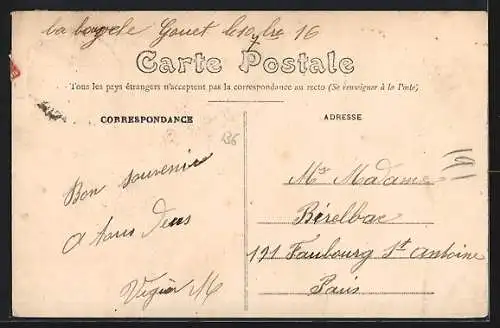 Gouet le 10 7bre 16
Carte Postale
Tous les pays étrangers n'acceptent pas la correspondance au recto (Se renseigner à la Poste)
CORRESPONDANCE
ADRESSE
136
191
Bon souvenir
a tous deus
M
Mr Madame
Bérelbac
191 Faubourg St Antoine
Paris